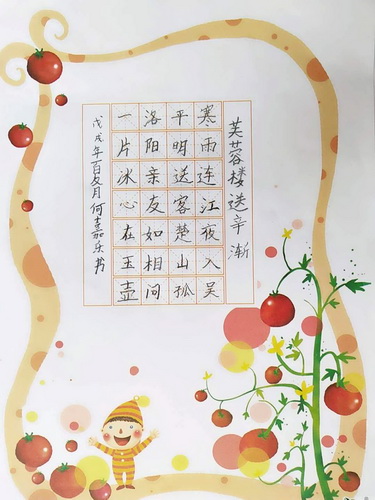 芙蓉楼送辛渐
寒雨连江夜入吴
平明送客楚山孤
洛阳亲友如相问
一片冰心在玉壶
戊戌年月何嘉乐书